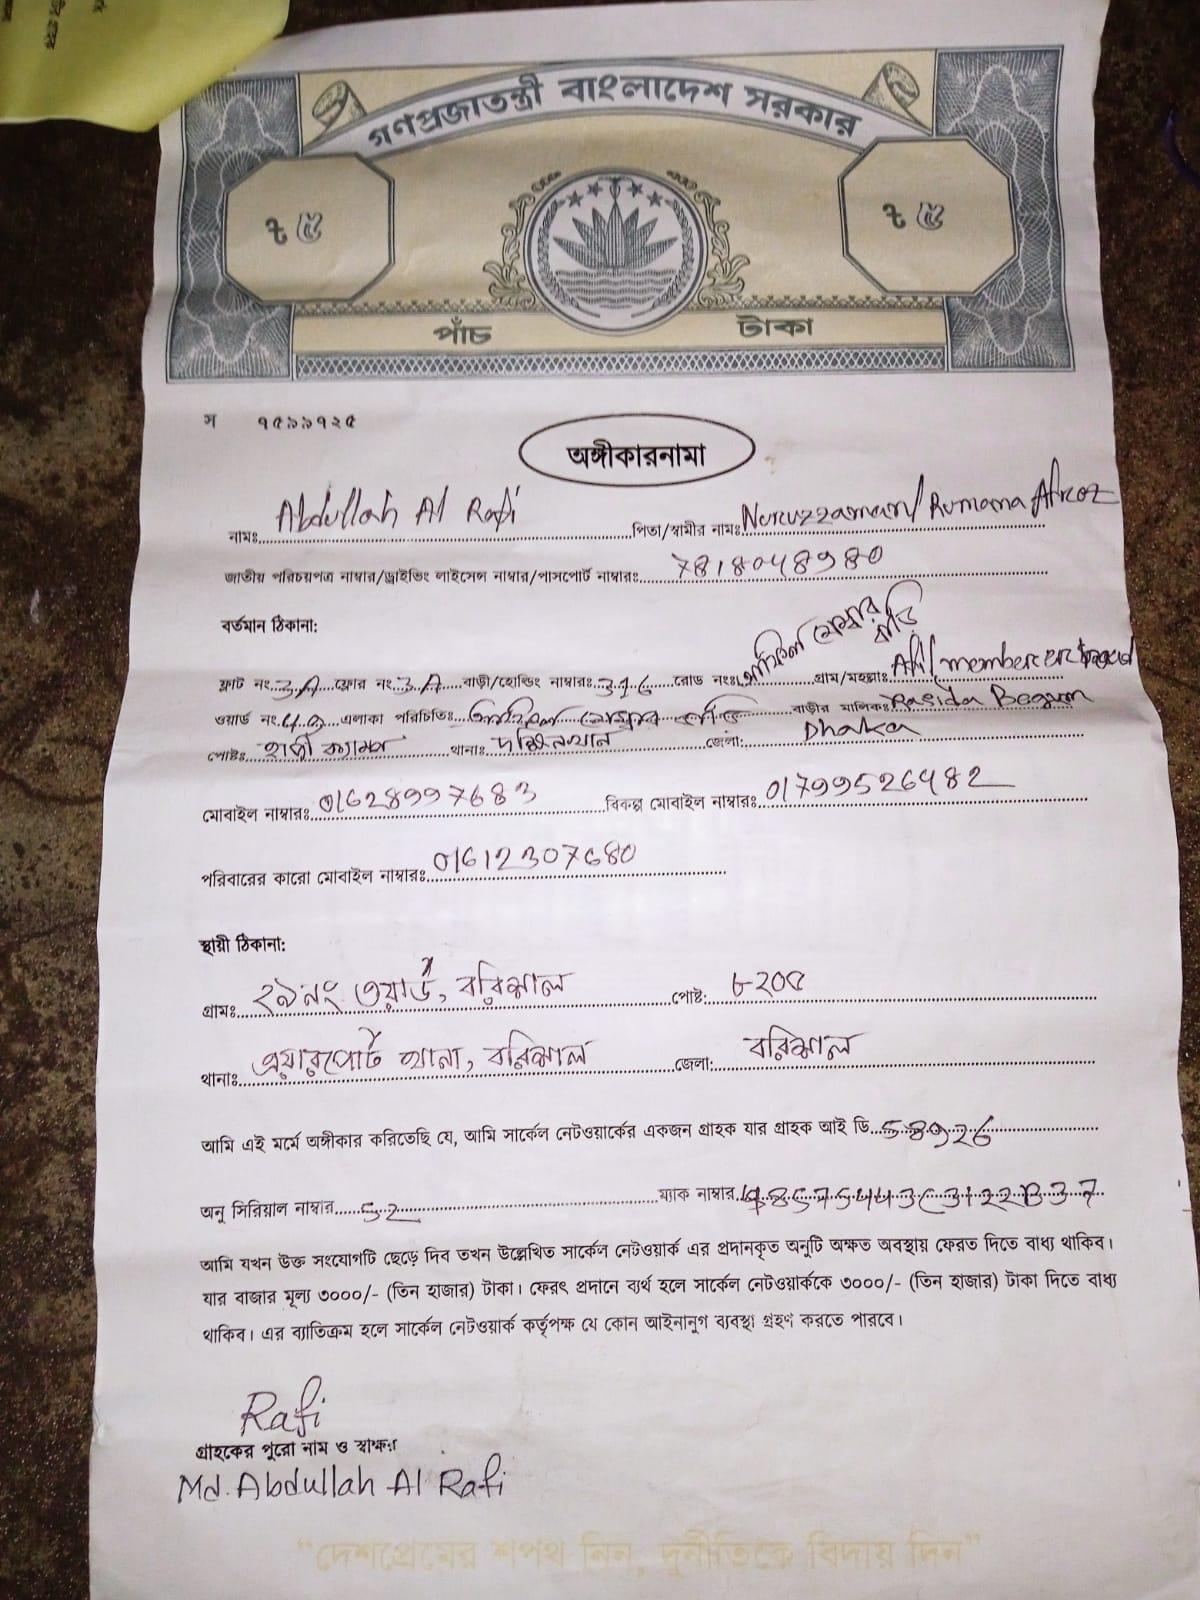 গণপ্রজাতন্ত্রী বাংলাদেশ সরকার
৳ ৫ ৳ ৫
পাঁচ টাকা
স ৭৫৯৯৭২৫
অঙ্গীকারনামা
নামঃ Abdullah Al Rafi পিতা/স্বামীর নামঃ Nuruzzaman/ Rumana Afroz
জাতীয় পরিচয়পত্র নাম্বার/ড্রাইভিং লাইসেন্স নাম্বার/পাসপোর্ট নাম্বারঃ 7818048980
বর্তমান ঠিকানা:
ফ্লাট নং 3A ফ্লোর নং 3A বাড়ী/হোল্ডিং নাম্বারঃ 316 রোড নংঃ মেম্বার বাড়ি গ্রাম/মহল্লাঃ member er
ওয়ার্ড নং এলাকা পরিচিতিঃ মেম্বার বাড়ি বাড়ীর মালিকঃ Rasida Begum
পোষ্টঃ হাজী ক্যাম্প থানাঃ দক্ষিনখান জেলা: Dhaka
মোবাইল নাম্বারঃ 01628997683 বিকল্প মোবাইল নাম্বারঃ 01799526482
পরিবারের কারো মোবাইল নাম্বারঃ 01612307680
স্থায়ী ঠিকানা:
গ্রামঃ ২৯নং ওয়ার্ড, বরিশাল পোষ্ট: ৮২০৫
থানাঃ এয়ারপোর্ট থানা, বরিশাল জেলা: বরিশাল
আমি এই মর্মে অঙ্গীকার করিতেছি যে, আমি সার্কেল নেটওয়ার্কের একজন গ্রাহক যার গ্রাহক আই ডি 58926
অনু সিরিয়াল নাম্বার 52 ম্যাক নাম্বার
আমি যখন উক্ত সংযোগটি ছেড়ে দিব তখন উল্লেখিত সার্কেল নেটওয়ার্ক এর প্রদানকৃত অনুটি অক্ষত অবস্থায় ফেরত দিতে বাধ্য থাকিব।
যার বাজার মূল্য ৩০০০/- (তিন হাজার) টাকা। ফেরৎ প্রদানে ব্যর্থ হলে সার্কেল নেটওয়ার্ককে ৩০০০/- (তিন হাজার) টাকা দিতে বাধ্য
থাকিব। এর ব্যাতিক্রম হলে সার্কেল নেটওয়ার্ক কর্তৃপক্ষ যে কোন আইনানুগ ব্যবস্থা গ্রহণ করতে পারবে।
Rafi
গ্রাহকের পুরো নাম ও স্বাক্ষর
Md. Abdullah Al Rafi
"দেশপ্রেমের শপথ নিন, দুর্নীতিকে বিদায় দিন"